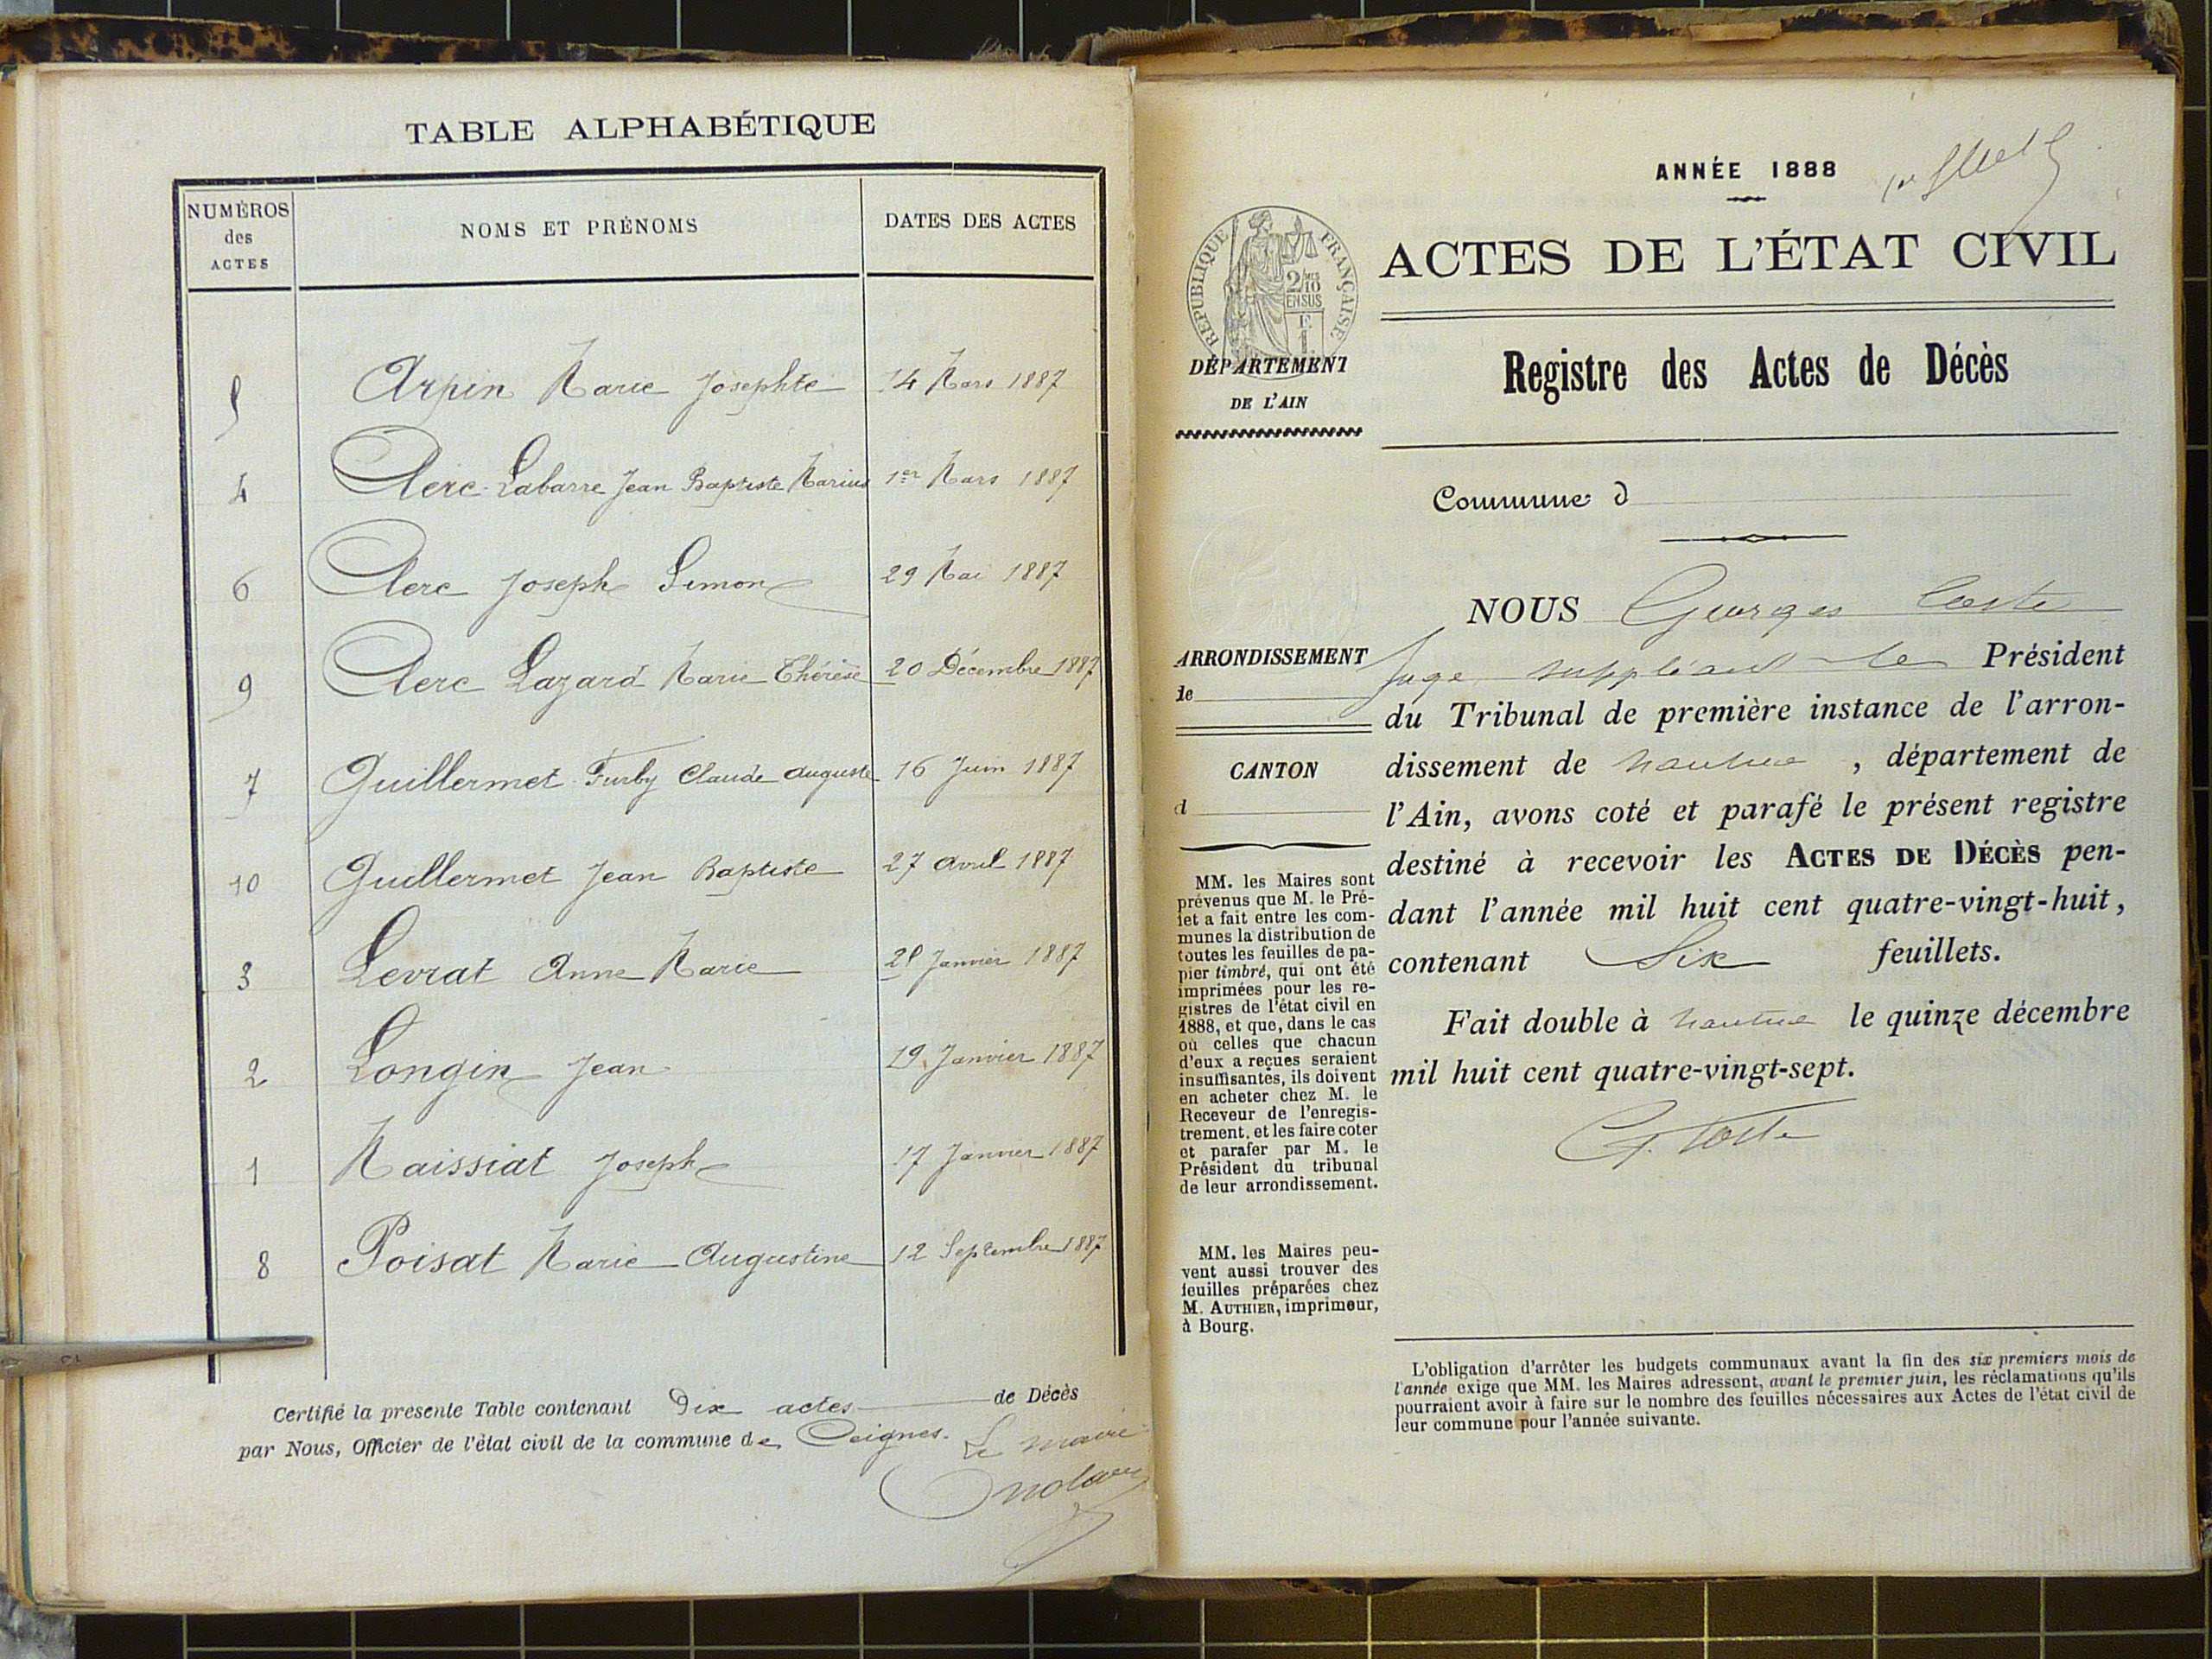 TABLE ALPHABÉTIQUE
NUMÉROS
des
ACTES
NOMS ET PRÉNOMS
DATES DES ACTES
5 Arpin Marie Josephte 14 Mars 1887
4 Clerc-Labarre Jean Baptiste Marius 1er Mars 1887
6 Clerc Joseph Simon 29 Mai 1887
9 Clerc Lazard Marie Thérèse 20 Décembre 1887
7 Guillermet-Furby Claude Auguste 16 Juin 1887
10 Guillermet Jean Baptiste 27 Avril 1887
3 Levrat Anne Marie Janvier 1887
2 Longin Jean 19 Janvier 1887
1 Maissiat Joseph 17 Janvier 1887
8 Poisat Marie Augustine 12 Septembre 1887
Certifié la présente Table contenant Dix actes de Décès
par Nous, Officier de l'état civil de la commune de Ceignes. Le maire
ANNÉE 1888
ACTES DE L'ÉTAT CIVIL
RÉPUBLIQUE FRANÇAISE
2/10
EN SUS
DÉPARTEMENT
DE L'AIN
Registre des Actes de Décès
Commune d
ARRONDISSEMENT
de
CANTON
d
MM. les Maires sont
prévenus que M. le Pré-
fet a fait entre les com-
munes la distribution de
toutes les feuilles de pa-
pier timbré, qui ont été
imprimées pour les re-
gistres de l'état civil en
1888, et que, dans le cas
où celles que chacun
d'eux a reçues seraient
insuffisantes, ils doivent
en acheter chez M. le
Receveur de l'enregis-
trement, et les faire coter
et parafer par M. le
Président du tribunal
de leur arrondissement.
MM. les Maires peu-
vent aussi trouver des
feuilles préparées chez
M. AUTHIER, imprimeur,
à Bourg.
NOUS Georges Coste
Juge suppléant le Président
du Tribunal de première instance de l'arron-
dissement de Nantua, département de
l'Ain, avons coté et parafé le présent registre
destiné à recevoir les ACTES DE DÉCÈS pen-
dant l'année mil huit cent quatre-vingt-huit,
contenant Six feuillets.
Fait double à Nantua le quinze décembre
mil huit cent quatre-vingt-sept.
G. Coste
L'obligation d'arrêter les budgets communaux avant la fin des six premiers mois de
l'année exige que MM. les Maires adressent, avant le premier juin, les réclamations qu'ils
pourraient avoir à faire sur le nombre des feuilles nécessaires aux Actes de l'état civil de
leur commune pour l'année suivante.